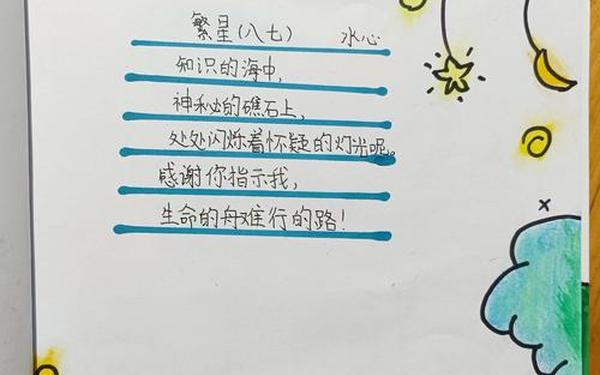 繁星(八七) 水心
知识的海中,
神秘的礁石上,
处处闪烁着怀疑的灯光呢。
感谢你指示我,
生命的舟难行的路!